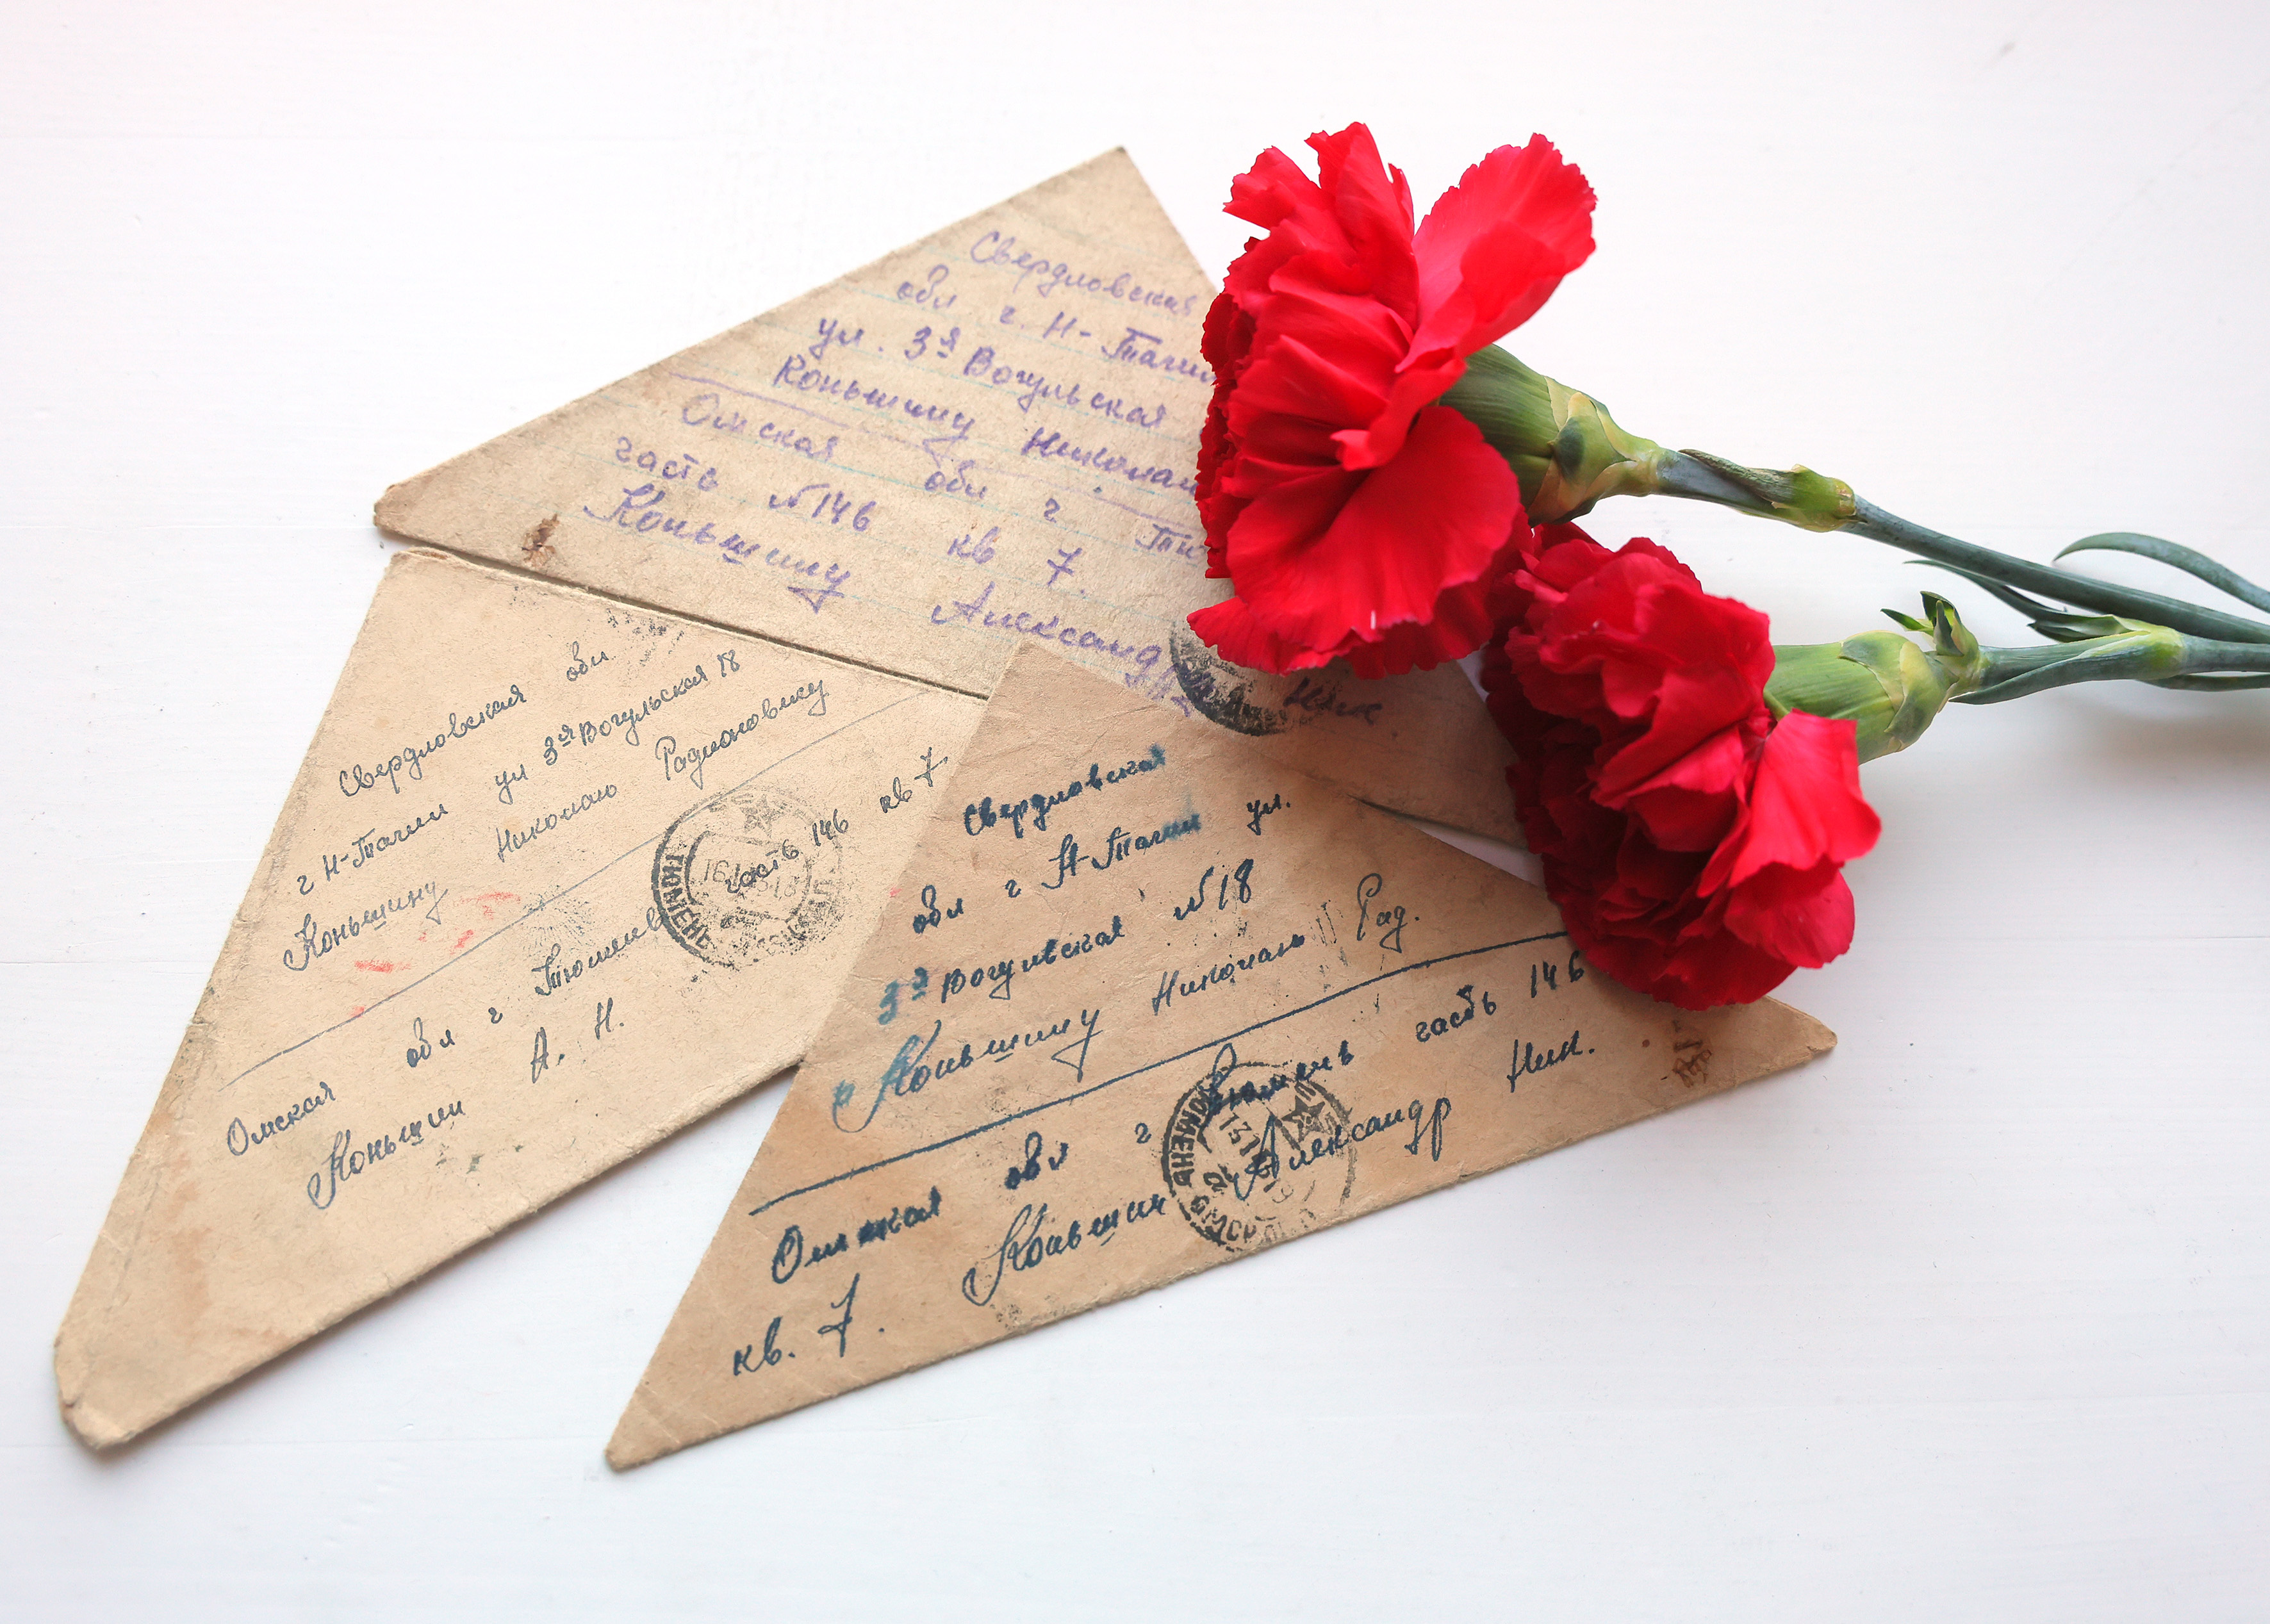 Свердловская
обл г. Н-Тагил
ул. 3я Вогульская
Коньшину Николаю
Омская обл г.
часть №146 кв 7.
Коньшину Александру Ник
Свердловская обл
г Н-Тагил ул 3я Вогульская 18
Коньшину Николаю Радионовичу
Омская обл г Тюмень часть 146 кв 7
Коньшин А. Н.
ТЮМЕНЬ
Свердловская
обл г Н-Тагил ул.
3я Вогульская №18
Коньшину Николаю Рад.
Омская обл г Тюмень часть 146
кв. 7. Коньшин Александр Ник.
ТЮМЕНЬ